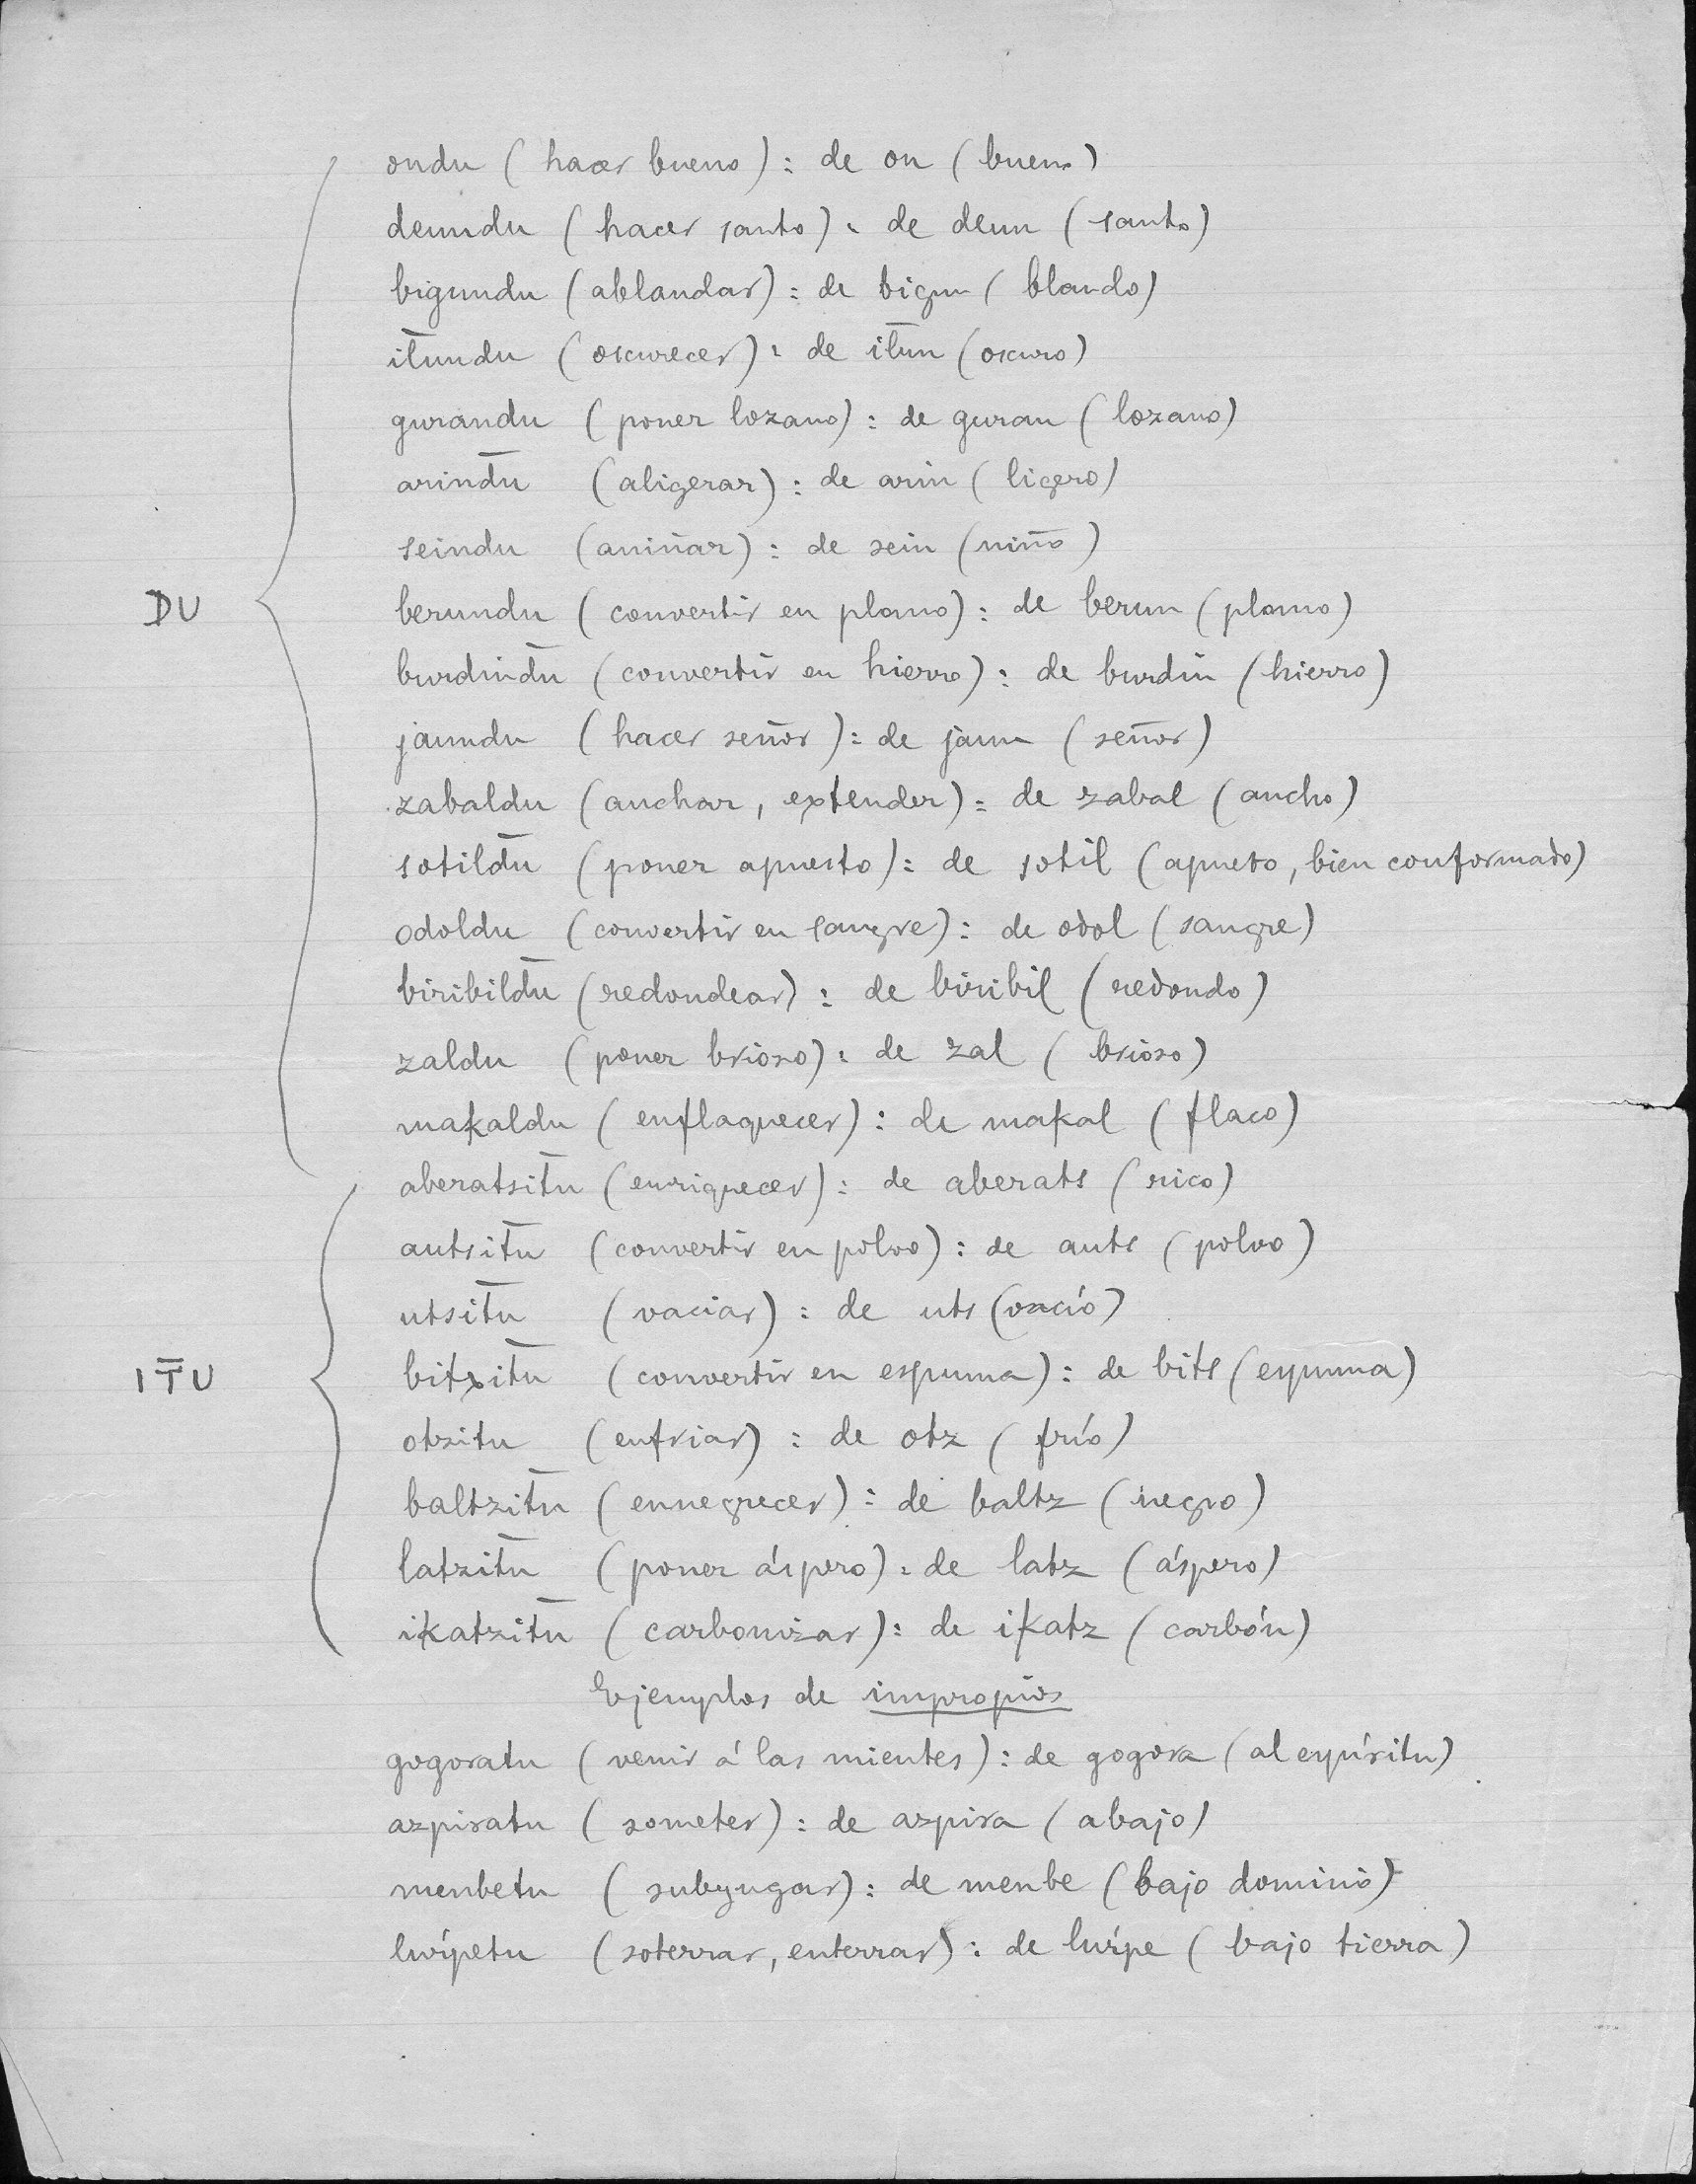 ondu (hacer bueno): de on (bueno)
deundu (hacer santo): de deun (santo)
bigundu (ablandar): de bigun (blando)
it̄undu (oscurecer): de it̄un (oscuro)
gurandu (poner lozano): de guran (lozano)
arind̄u (aligerar): de arin (ligero)
seindu (aniñar): de sein (niño)
DU
berundu (convertir en plomo): de berun (plomo)
burdind̄u (convertir en hierro): de burdin (hierro)
jaundu (hacer señor): de jaun (señor)
zabaldu (anchar, extender): de zabal (ancho)
sotild̄u (poner apuesto): de sotil (apuesto, bien conformado)
odoldu (convertir en sangre): de odol (sangre)
biribild̄u (redondear): de biribil (redondo)
zaldu (poner brioso): de zal (brioso)
makaldu (enflaquecer): de makal (flaco)
aberatsit̄u (enriquecer): de aberats (rico)
autsit̄u (convertir en polvo): de auts (polvo)
utsit̄u (vaciar): de uts (vacío)
IT̄U
bitxit̄u (convertir en espuma): de bits (espuma)
otzitu (enfriar): de otz (frío)
baltzit̄u (ennegrecer): de baltz (negro)
latzit̄u (poner áspero): de latz (áspero)
ikatzit̄u (carbonizar): de ikatz (carbón)
Ejemplos de impropios
gogoratu (venir á las mientes): de gogora (al espíritu)
azpiratu (someter): de azpira (abajo)
menbetu (subyugar): de menbe (bajo dominio)
luŕpetu (soterrar, enterrar): de luŕpe (bajo tierra)